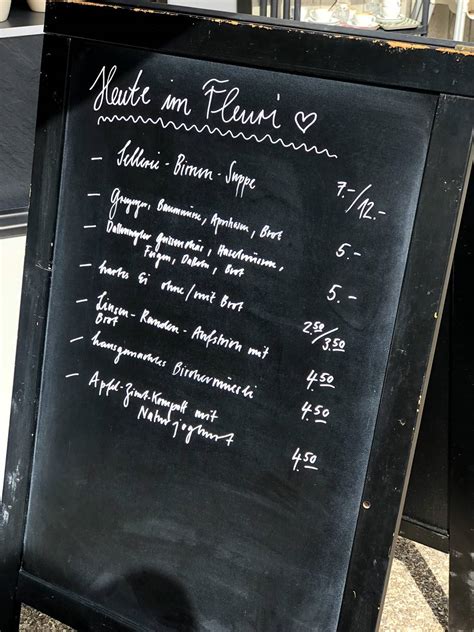 Heute im Fleuri ♡
- Sellerie-Birnen-Suppe 7.-/12.-
- Greyezer, Baumnüsse, Aprikosen, Brot 5.-
- Haselnüssen,
Feigen, Datteln, Brot 5.-
- hartes Ei ohne/mit Brot 2.50/3.50
- Linsen-Randen-Aufstrich mit
Brot 4.50
- hausgemachtes Birchermüesli 4.50
- Apfel-Zimt-Kompott mit
Naturjoghurt 4.50